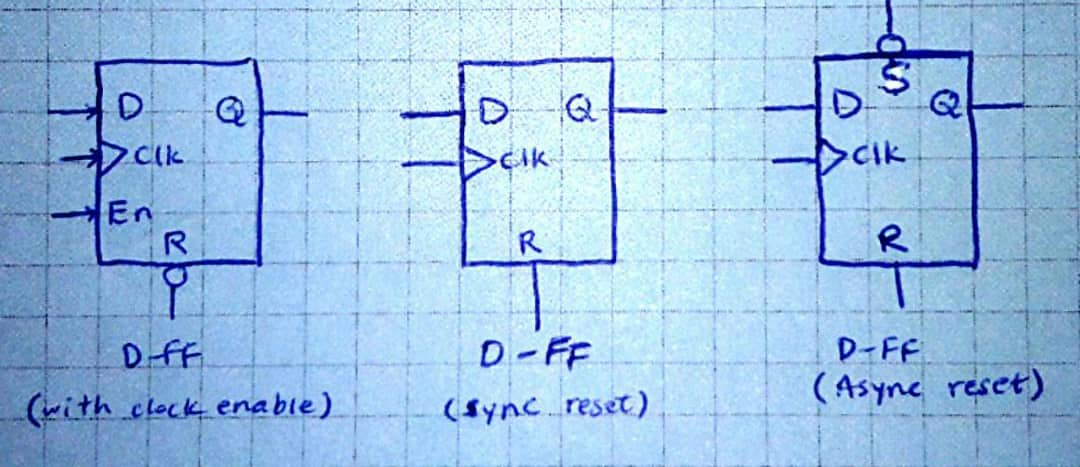 D Q
Clk
En
R
D-FF
(with clock enable)
D Q
Clk
R
D-FF
(sync reset)
S
D Q
Clk
R
D-FF
(Async reset)